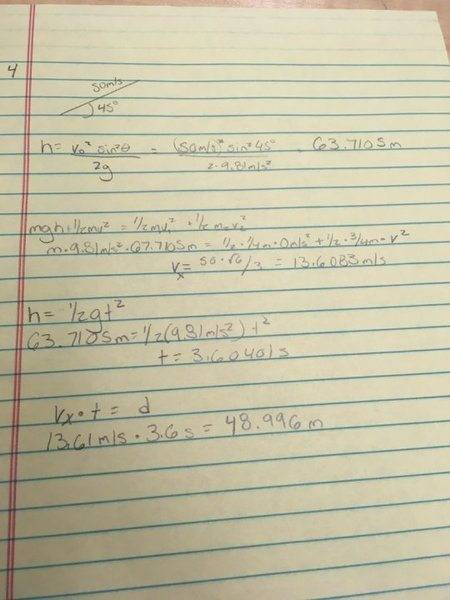 4
50m/s
45°
h= v₀² sin²θ / 2g = (50m/s)² sin²45° / 2·9.81m/s² = 63.7105m
mgh + ½mv² = ½mv₁² + ½m₂v₂²
m·9.81m/s²·67.7105m = ½·¼m·0m/s² + ½·¾m·v²
vₓ = 50·√6/3 = 13.6083m/s
h= ½gt²
63.7105m=½(9.81m/s²)t²
t= 3.60401s
Vx·t = d
13.61m/s·3.6s = 48.996m